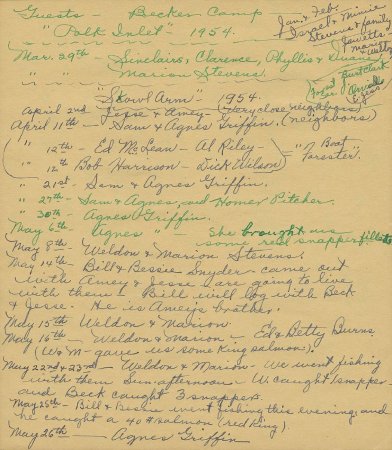 Guests - Becker Camp
"Polk Inlet" 1954.
Jan. & Feb.
Israel & Minnie
Stevens & family
Mar. 29th - Sinclairs, Clarence, Phyllis & Duane,
" " - Marion Stevens.
"Skowl Arm" - 1954.
April 2nd - Jesse & Amey - (very close neighbors)
April 11th - Sam & Agnes Griffin. (neighbors)
" 12th - Ed McLean - Al Riley - "Boat
" 12th Bob Harrison - Dick Wilson Forester."
" 21st - Sam & Agnes Griffin.
" 27th - Sam & Agnes, and Homer Pitcher.
" 30th - Agnes Griffin.
May 6th - Agnes " She brought us
some red snapper fillets
May 8th - Weldon & Marion Stevens.
May 14th - Bill & Bessie Snyder - came out
with Amey & Jesse are going to live
with them - Bill will log with Beck
& Jesse. He is Amey's brother.
May 15th Weldon & Marion
May 16th - Weldon & Marion - Ed & Betty Burns
(W & M - gave us some King salmon).
May 22nd & 23rd - Weldon & Marion - We went fishing
with them Sun. afternoon - W caught 1 snapper
and Beck caught 3 snappers.
May 25th - Bill & Bessie went fishing this evening and
he caught a 40 # salmon (red King).
May 26th - Agnes Griffin